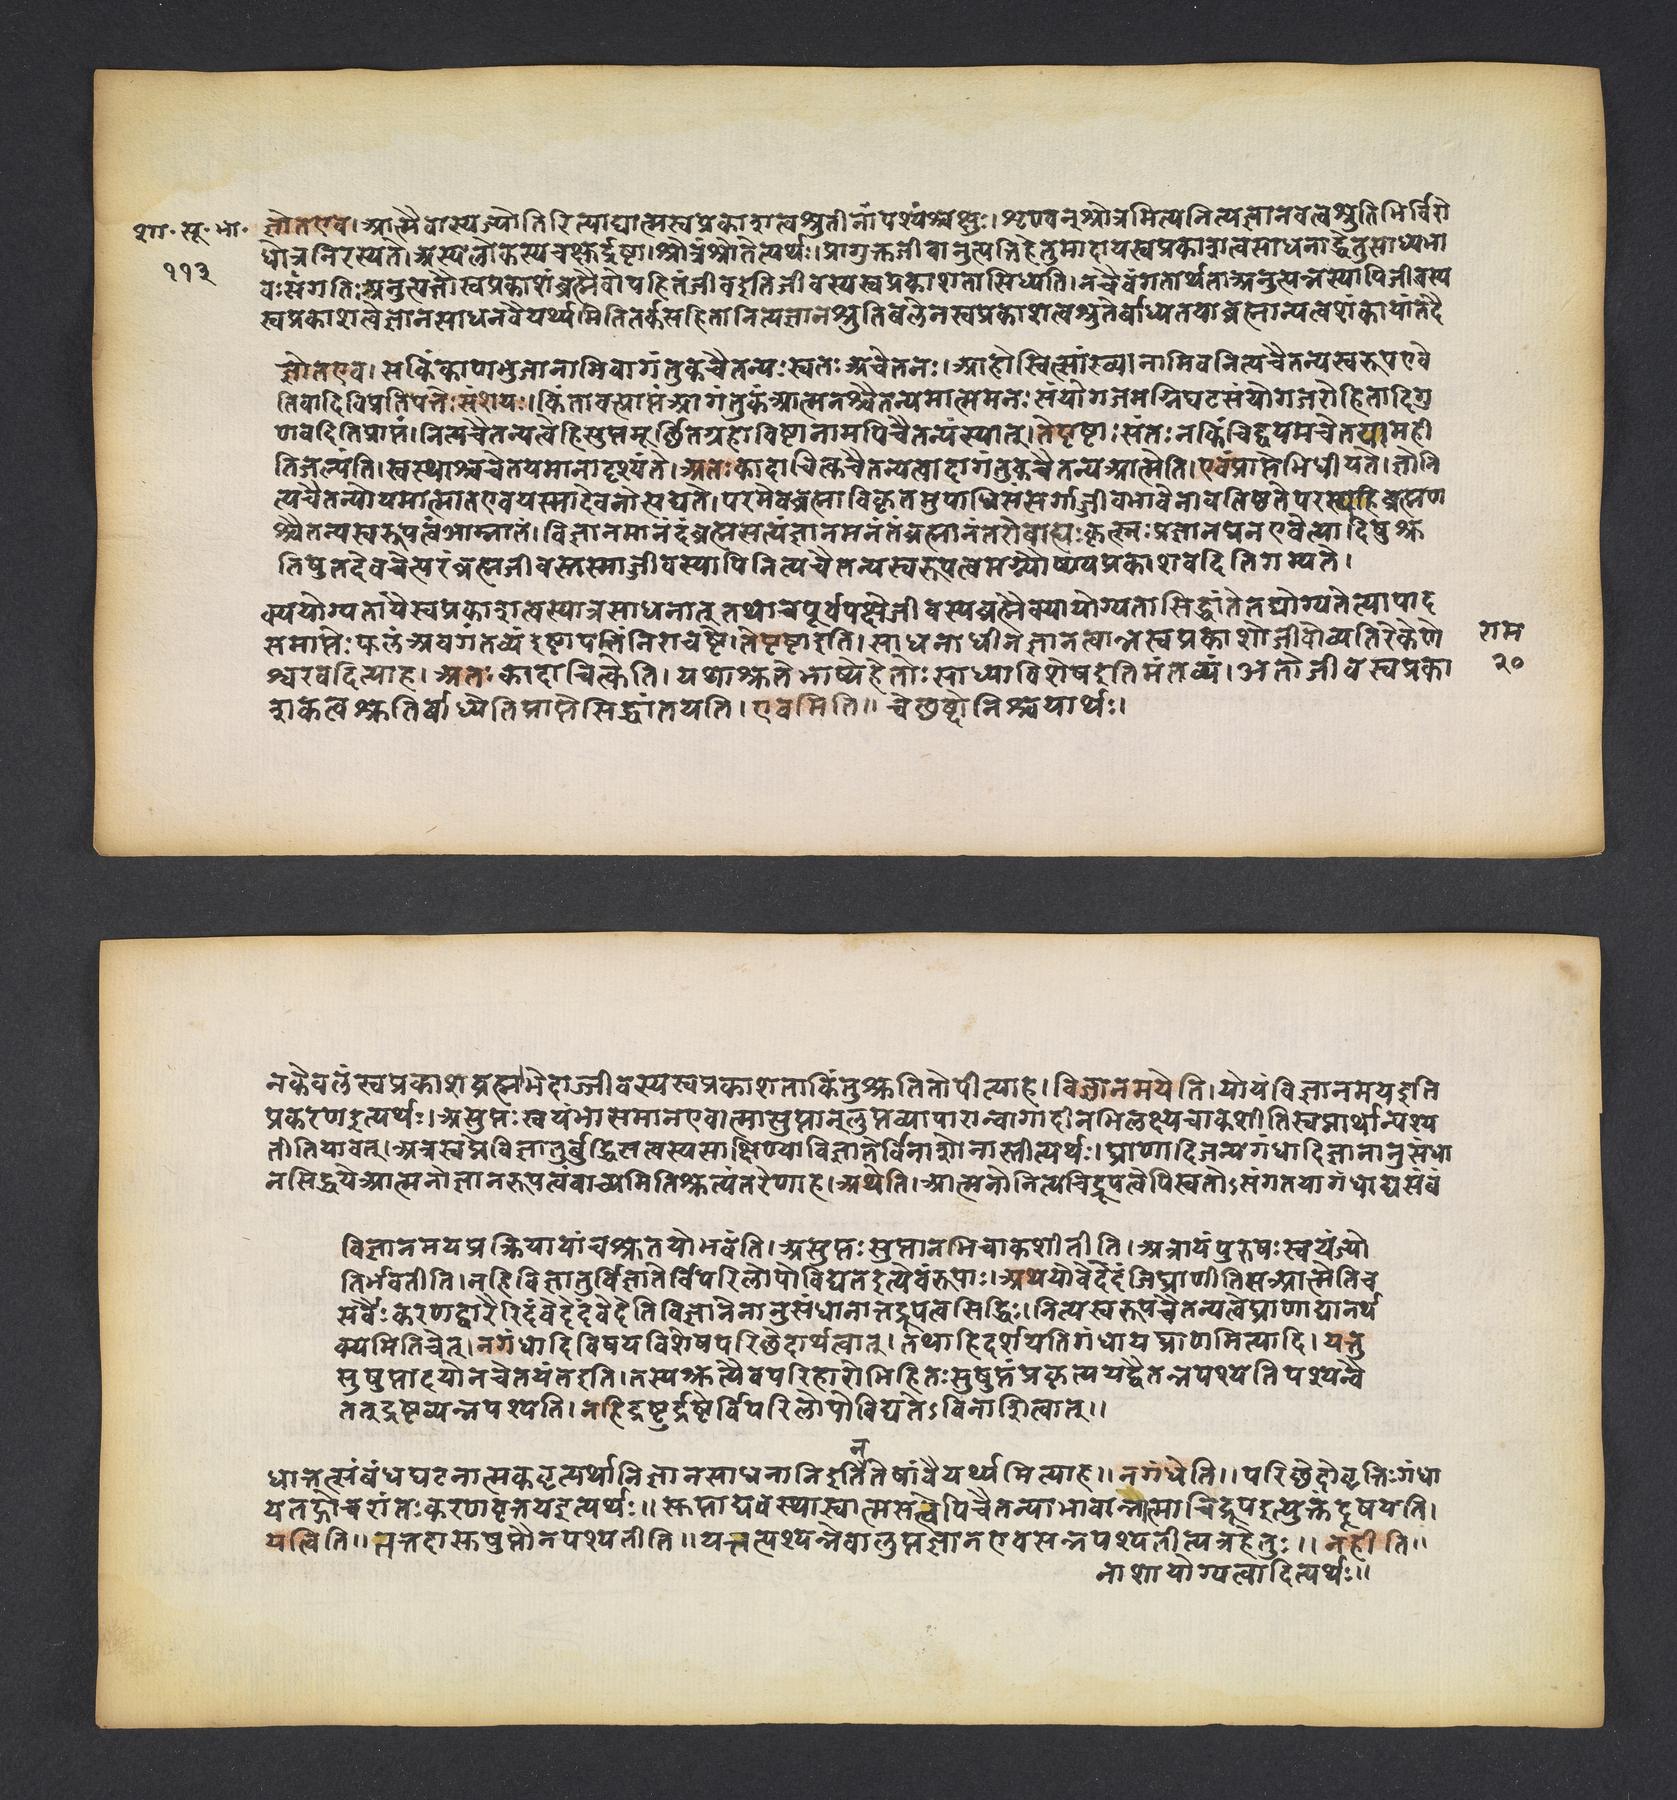 शा. सू. भा.
११३
ज्ञोतएव। आत्मैवास्यज्योतिरित्याद्यात्मस्वप्रकाशत्वश्रुतीनांपश्यंश्चक्षुः। शृण्वन्श्रोत्रमित्यनित्यज्ञानवत्वश्रुतिभिर्विरो
धोत्रनिरस्यते। अस्यलोकस्यचक्षुर्द्रष्टा। श्रोत्रंश्रोतेत्यर्थः। प्रागुक्तजीवानुत्पत्तिहेतुमादायस्वप्रकाशत्वसाधनाद्धेतुसाध्यभा
वःसंगतिः अनुत्पन्नौस्वप्रकाशंब्रह्मैवोपहितंजीवइतिजीवस्यस्वप्रकाशतासिध्यति। नचैवंगतार्थताअनुत्पन्नस्यापिजीवस्य
स्वप्रकाशत्वेज्ञानसाधनवैयर्थ्यमितितर्कसहितानित्यज्ञानश्रुतिबलेनस्वप्रकाशत्वश्रुतेर्बाध्यतयाब्रह्मान्यत्वशंकायांतदै
ज्ञोतएव। सकिंकाणभुजानामिवागंतुकचैतन्यःस्वतःअचेतनः। आहोस्वित्सांख्यानामिवनित्यचैतन्यस्वरूपएवे
तिवादिविप्रतिपत्तेःसंशयः। किंतावत्प्राप्तंआगंतुकंआत्मनश्चैतन्यमात्ममनःसंयोगजमग्निघटसंयोगजरोहितादिगु
णवदितिप्राप्तं। नित्यचैतन्यत्वेहिसुप्तमूर्छितग्रहाविष्टानामपिचैतन्यंस्यात्। तेपृष्टाःसंतःनकिंचिद्वयमचेतयामही
तिजल्पंति। स्वस्थाश्चचेतयमानादृश्यंते। अतःकादाचित्कचैतन्यत्वादागंतुकचैतन्यआत्मेति। एवंप्राप्तेभिधीयते। ज्ञोनि
त्यचैतन्योयमात्मातएवयस्मादेवनोत्पद्यते। परमेवब्रह्माविकृतमुपाधिसंसर्गाज्जीवभावेनावतिष्ठतेपरस्यहिब्रह्मण
श्चैतन्यस्वरूपत्वंआम्नातं। विज्ञानमानंदंब्रह्मसत्यंज्ञानमनंतंब्रह्मानंतरोबाह्यःकृत्स्नःप्रज्ञानघनएवेत्यादिषुश्रु
तिषुतदेवचेत्परंब्रह्मजीवस्तस्माज्जीवस्यापिनित्यचैतन्यस्वरूपत्वमग्न्यौष्ण्यप्रकाशवदितिगम्यते।
क्ययोग्यतायैस्वप्रकाशत्वस्यात्रसाधनात् तथाचपूर्वपक्षेजीवस्यब्रह्मैक्यायोग्यतासिद्धांतेतद्योग्यतेत्यापाद
समाप्तेःफलंअवगंतव्यं इष्टापत्तिंनिराचष्टे। तेपृष्टाइति। साधनाधीनज्ञानत्वान्नस्वप्रकाशोजीवोव्यतिरेकेणे
श्वरवदित्याह। अतःकादाचित्केति। यथाश्रुतेभाष्येहेतोःसाध्याविशेषइतिमंतव्यं। अतोजीवस्वप्रका
शकत्वश्रुतिर्बाध्येतिप्राप्तेसिद्धांतयति। एवमिति॥ चेछब्दोनिश्चयार्थः।
राम
२०
नकेवलंस्वप्रकाशब्रह्माभेदाज्जीवस्यस्वप्रकाशताकिंतुश्रुतितोपीत्याह। विज्ञानमयेति। योयंविज्ञानमयइति
प्रकरणइत्यर्थः। असुप्तःस्वयंभासमानएवात्मासुप्तान्लुप्तव्यापारान्वागादीनभिलक्ष्यचाकशीतिस्वप्नार्थान्पश्य
तीतियावत्। अत्रस्वप्नेविज्ञातुर्बुद्धिसत्वस्यसाक्षिण्याविज्ञातेर्विनाशोनास्तीत्यर्थः। घ्राणादिजन्यगंधादिज्ञानानुसंधा
नसिद्धयेआत्मनोज्ञानरूपत्वंवाच्यमितिश्रुत्यंतरेणाह। अथेति। आत्मनोनित्यचिद्रूपत्वेपिस्वतोऽसंगतयागंधाद्यसंबं
विज्ञानमयप्रक्रियायांचश्रुतयोभवंति। असुप्तःसुप्तानभिचाकशीतीति। अत्रायंपुरुषःस्वयंज्यो
तिर्भवतीति। नहिविज्ञातुर्विज्ञातेर्विपरिलोपोविद्यतइत्येवंरूपाः। अथयोवेदेदंजिघ्राणीतिसआत्मेतिच
सर्वैःकरणद्वारैरिदंवेदेदंवेदेतिविज्ञानेनानुसंधानात्तद्रूपत्वसिद्धिः। नित्यस्वरूपचैतन्यत्वेघ्राणाद्यानर्थ
क्यमितिचेत्। नगंधादिविषयविशेषपरिछेदार्थत्वात्। तथाहिदर्शयतिगंधायघ्राणमित्यादि। यत्तु
सुषुप्तादयोनचेतयंतइति। तस्यश्रुत्यैवपरिहारोभिहितःसुषुप्तंप्रकृत्ययद्वैतन्नपश्यतिपश्यन्वै
तत्द्रष्टव्यन्नपश्यति। नहिद्रष्टुर्दृष्टेर्विपरिलोपोविद्यतेऽविनाशित्वात्॥
न्
धात्तत्संबंधघटनात्मकवृत्यर्थानिज्ञानसाधनानिइतितेषांवैयर्थ्यमित्याह॥ नगंधेति॥ परिछेदोवृत्तिःगंधा
यतद्गोचरांतःकरणवृत्तयइत्यर्थः॥ सुप्ताद्यवस्थास्वात्मसत्वेपिचैतन्याभावान्नात्माचिद्रूपइत्युक्तंदूषयति।
यत्विति॥ तत्तदासुषुप्तौनपश्यतीति॥ यत्तत्पश्यन्नेवालुप्तज्ञानएवसन्नपश्यतीत्यत्रहेतुः॥ नहीति॥
नाशायोग्यत्वादित्यर्थः॥